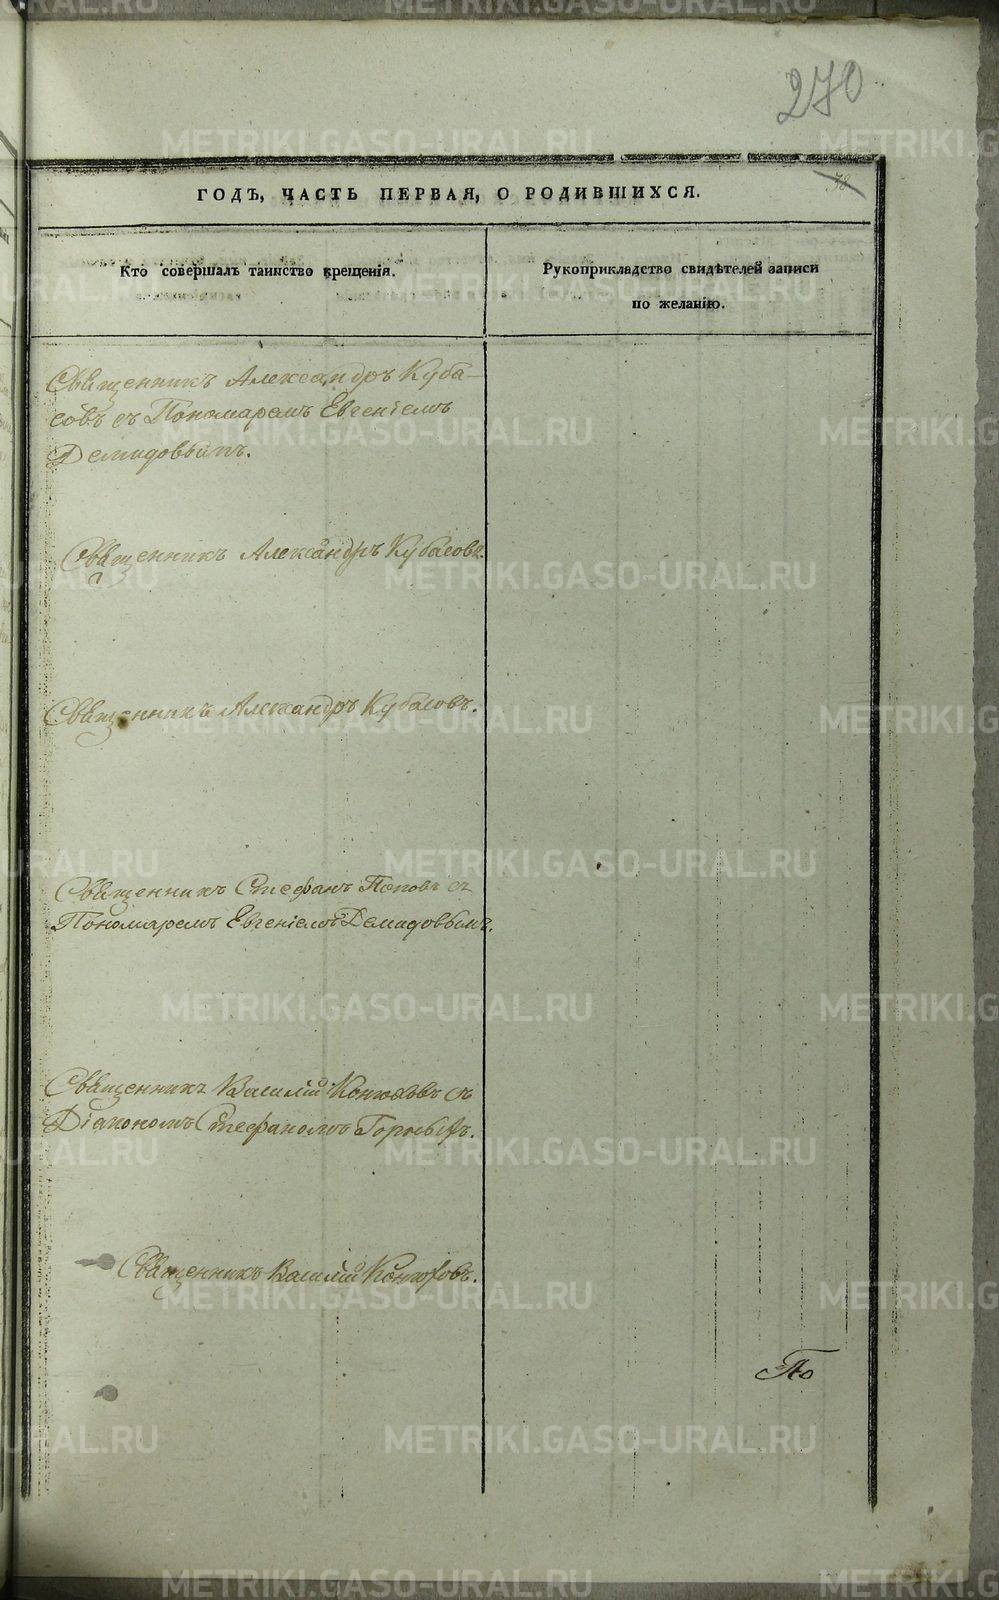 270
38
ГОДЪ, ЧАСТЬ ПЕРВАЯ, О РОДИВШИХСЯ.
Кто совершалъ таинство крещенія.
Рукоприкладство свидѣтелей записи
по желанію.
Священникъ Александръ Куба-
совъ съ Пономаремъ Евгеніемъ
Демидовымъ.
Священникъ Александръ Кубасовъ.
Священникъ Александръ Кубасовъ.
Священникъ Стефанъ Поповъ съ
Пономаремъ Евгеніемъ Демидовымъ.
Священникъ Василій Конюховъ съ
Діакономъ Стефаномъ Горныхъ.
Священникъ Василій Конюховъ.
По
METRIKI.GASO-URAL.RU